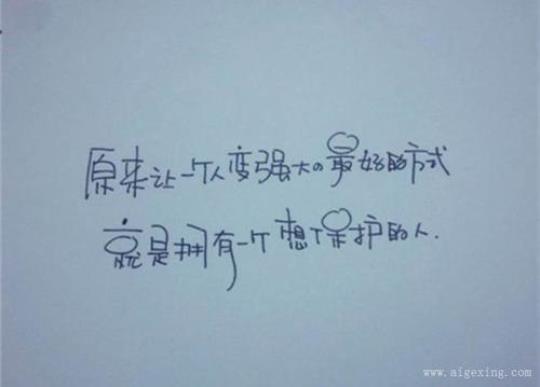 原来让一个人变强大的最好的方式
就是拥有一个想保护的人.
www.aigexing.com